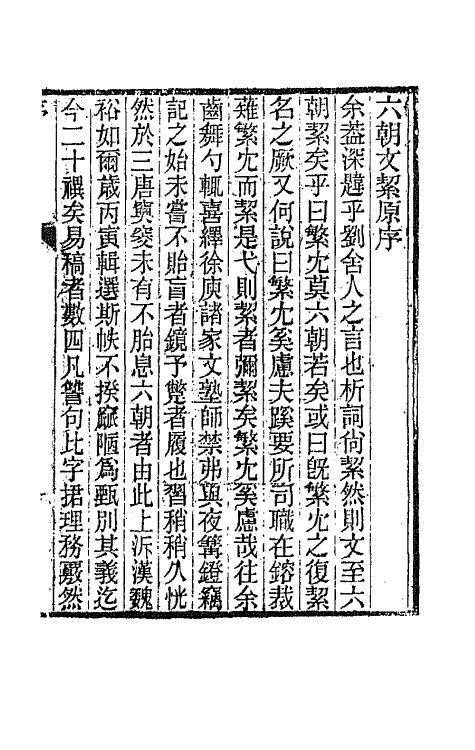 六朝文絜原序
余葢深韙乎劉舍人之言也析詞尙絜然則文至六
朝絜矣乎曰繁冘莫六朝若矣或曰旣繁冘之復絜
名之厥又何說曰繁冘奚慮夫蹊要所司職在鎔裁
雖繁冘而絜是弋則絜者彌絜矣繁冘奚慮哉往余
齒舞勺輒喜繹徐庾諸家文塾師禁弗與夜篝鐙竊
記之始未嘗不貽盲者鏡予躄者履也習稍稍久恍
然於三唐奧窔未有不胎息六朝者由此上泝漢魏
裕如爾歲丙寅輯選斯帙不揆𨻶陋爲甄別其義迄
今二十禩矣易稿者數四凡讐句比字捃理務覈然